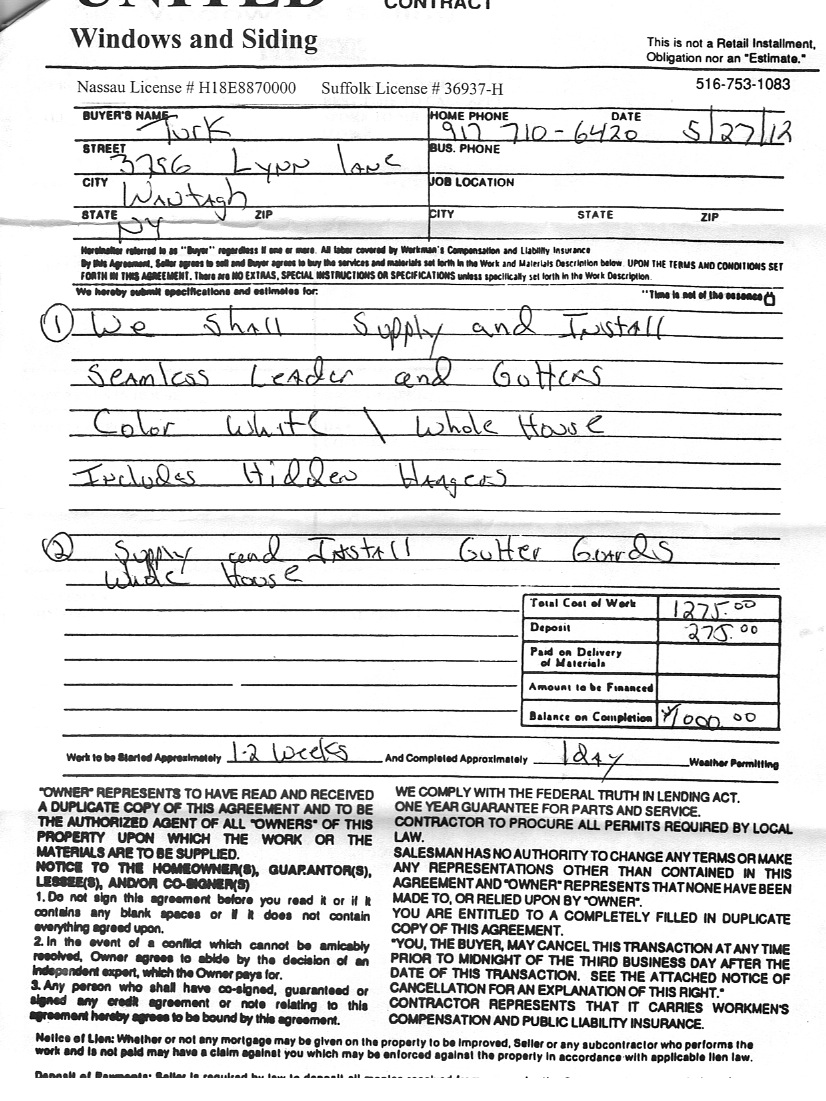 UNITED CONTRACT
Windows and Siding
This is not a Retail Installment,
Obligation nor an "Estimate."
Nassau License # H18E8870000 Suffolk License # 36937-H
516-753-1083
BUYER'S NAME Turk HOME PHONE 917 710-6420 DATE 5/27/12
STREET 3756 Lynn Lane BUS. PHONE
CITY Wantagh JOB LOCATION
STATE NY ZIP CITY STATE ZIP
Hereinafter referred to as "Buyer" regardless if one or more. All labor covered by Workman's Compensation and Liability Insurance
By this Agreement, Seller agrees to sell and Buyer agrees to buy the services and materials set forth in the Work and Materials Description below. UPON THE TERMS AND CONDITIONS SET
FORTH IN THIS AGREEMENT. There are NO EXTRAS, SPECIAL INSTRUCTIONS OR SPECIFICATIONS unless specifically set forth in the Work Description.
We hereby submit specifications and estimates for: "Time is not of the essence
① We Shall Supply and Install
Seamless Leader and Gutters
Color White \ Whole House
Includes Hidden Hangers
② Supply and Install Gutter Guards
Whole House
Total Cost of Work 1275.00
Deposit 275.00
Paid on Delivery
of Materials
Amount to be Financed
Balance on Completion 1000.00
Work to be Started Approximately 1-2 Weeks And Completed Approximately 1 day Weather Permitting
"OWNER" REPRESENTS TO HAVE READ AND RECEIVED
A DUPLICATE COPY OF THIS AGREEMENT AND TO BE
THE AUTHORIZED AGENT OF ALL "OWNERS" OF THIS
PROPERTY UPON WHICH THE WORK OR THE
MATERIALS ARE TO BE SUPPLIED.
NOTICE TO THE HOMEOWNER(S), GUARANTOR(S),
LESSEE(S), AND/OR CO-SIGNER(S)
1. Do not sign this agreement before you read it or if it
contains any blank spaces or if it does not contain
everything agreed upon.
2. In the event of a conflict which cannot be amicably
resolved, Owner agrees to abide by the decision of an
independent expert, which the Owner pays for.
3. Any person who shall have co-signed, guaranteed or
signed any credit agreement or note relating to this
agreement hereby agrees to be bound by this agreement.
WE COMPLY WITH THE FEDERAL TRUTH IN LENDING ACT.
ONE YEAR GUARANTEE FOR PARTS AND SERVICE.
CONTRACTOR TO PROCURE ALL PERMITS REQUIRED BY LOCAL
LAW.
SALESMAN HAS NO AUTHORITY TO CHANGE ANY TERMS OR MAKE
ANY REPRESENTATIONS OTHER THAN CONTAINED IN THIS
AGREEMENT AND "OWNER" REPRESENTS THAT NONE HAVE BEEN
MADE TO, OR RELIED UPON BY "OWNER".
YOU ARE ENTITLED TO A COMPLETELY FILLED IN DUPLICATE
COPY OF THIS AGREEMENT.
"YOU, THE BUYER, MAY CANCEL THIS TRANSACTION AT ANY TIME
PRIOR TO MIDNIGHT OF THE THIRD BUSINESS DAY AFTER THE
DATE OF THIS TRANSACTION. SEE THE ATTACHED NOTICE OF
CANCELLATION FOR AN EXPLANATION OF THIS RIGHT."
CONTRACTOR REPRESENTS THAT IT CARRIES WORKMEN'S
COMPENSATION AND PUBLIC LIABILITY INSURANCE.
Notice of Lien: Whether or not any mortgage may be given on the property to be improved, Seller or any subcontractor who performs the
work and is not paid may have a claim against you which may be enforced against the property in accordance with applicable lien law.